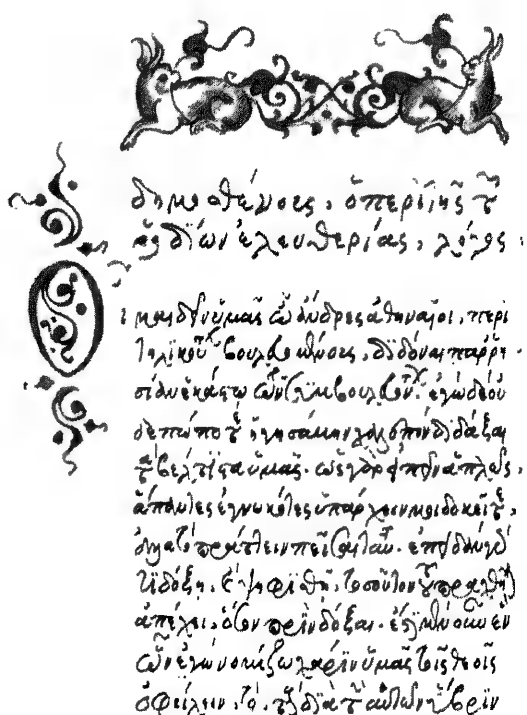 δημοσθένους, ὁ περὶ τῆς τῶν
ῥοδίων ἐλευθερίας, λόγος.
Οἶμαι δεῖν ὑμᾶς ὦ ἄνδρες ἀθηναῖοι, περὶ
τηλικούτων βουλευομένους, διδόναι παρρη
σίαν ἑκάστω τῶν συμβουλευόντων. ἐγὼ δ' οὐ
δεπώποτε ἡγησάμην χαλεπὸν διδάξαι
τὰ βέλτιστα ὑμᾶς. ὡς γὰρ εἰπεῖν ἁπλῶς,
ἅπαντες ἐγνωκότες ὑπάρχειν μοι δοκεῖτε,
ἀλλὰ τὸ πράττειν πεῖσαι ταῦτα. ἐπειδὰν γάρ
τι δόξη, καὶ ψηφισθῆ, τοσοῦτον τοῦ πραχθῆναι
ἀπέχει, ὅσον πρὶν δόξαι. ἔστι μὲν οὖν ἓν
ὧν ἐγὼ νομίζω χάριν ὑμᾶς τοῖς θεοῖς
ὀφείλειν, τὸ, τοὺς διὰ τὴν αὑτῶν ὕβριν